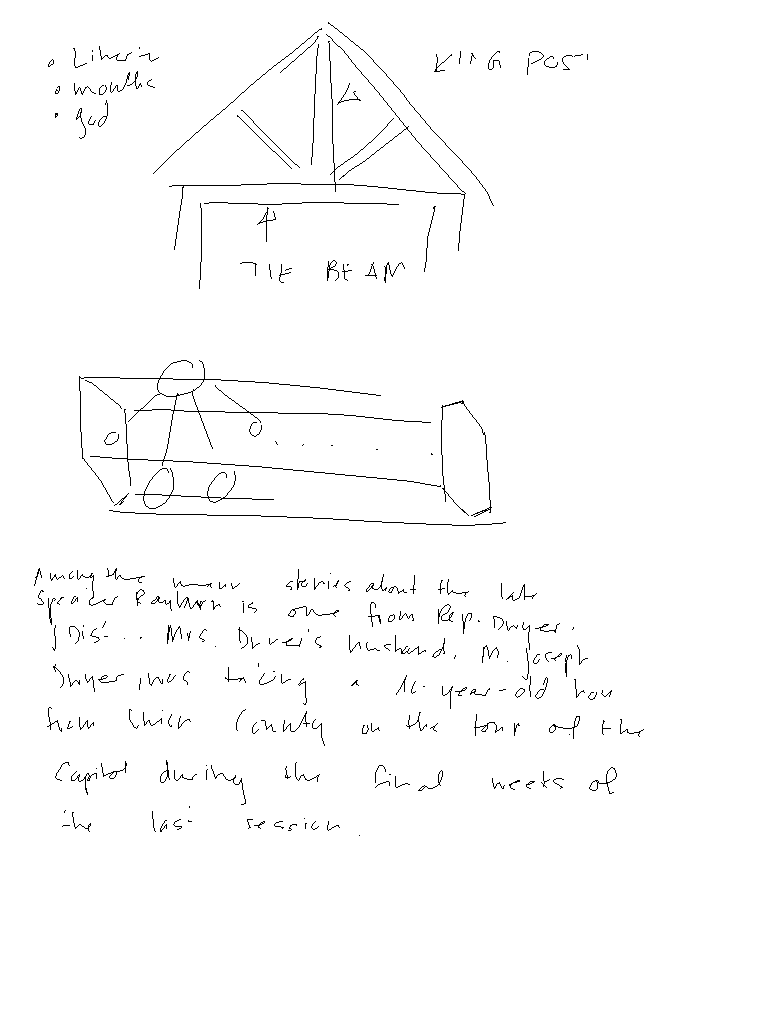 • Liberia
• months
• god
KING POST
TIE BEAM
Among the many stories about the late
Speaker Rayburn is one from Rep. Dwyer.
Dist.. Mrs. Dwyer's husband, M. Joseph
Dwyer, was taking a 10-year-old boy
from Union County on the tour of the
Capitol during the final weeks of
the last session.